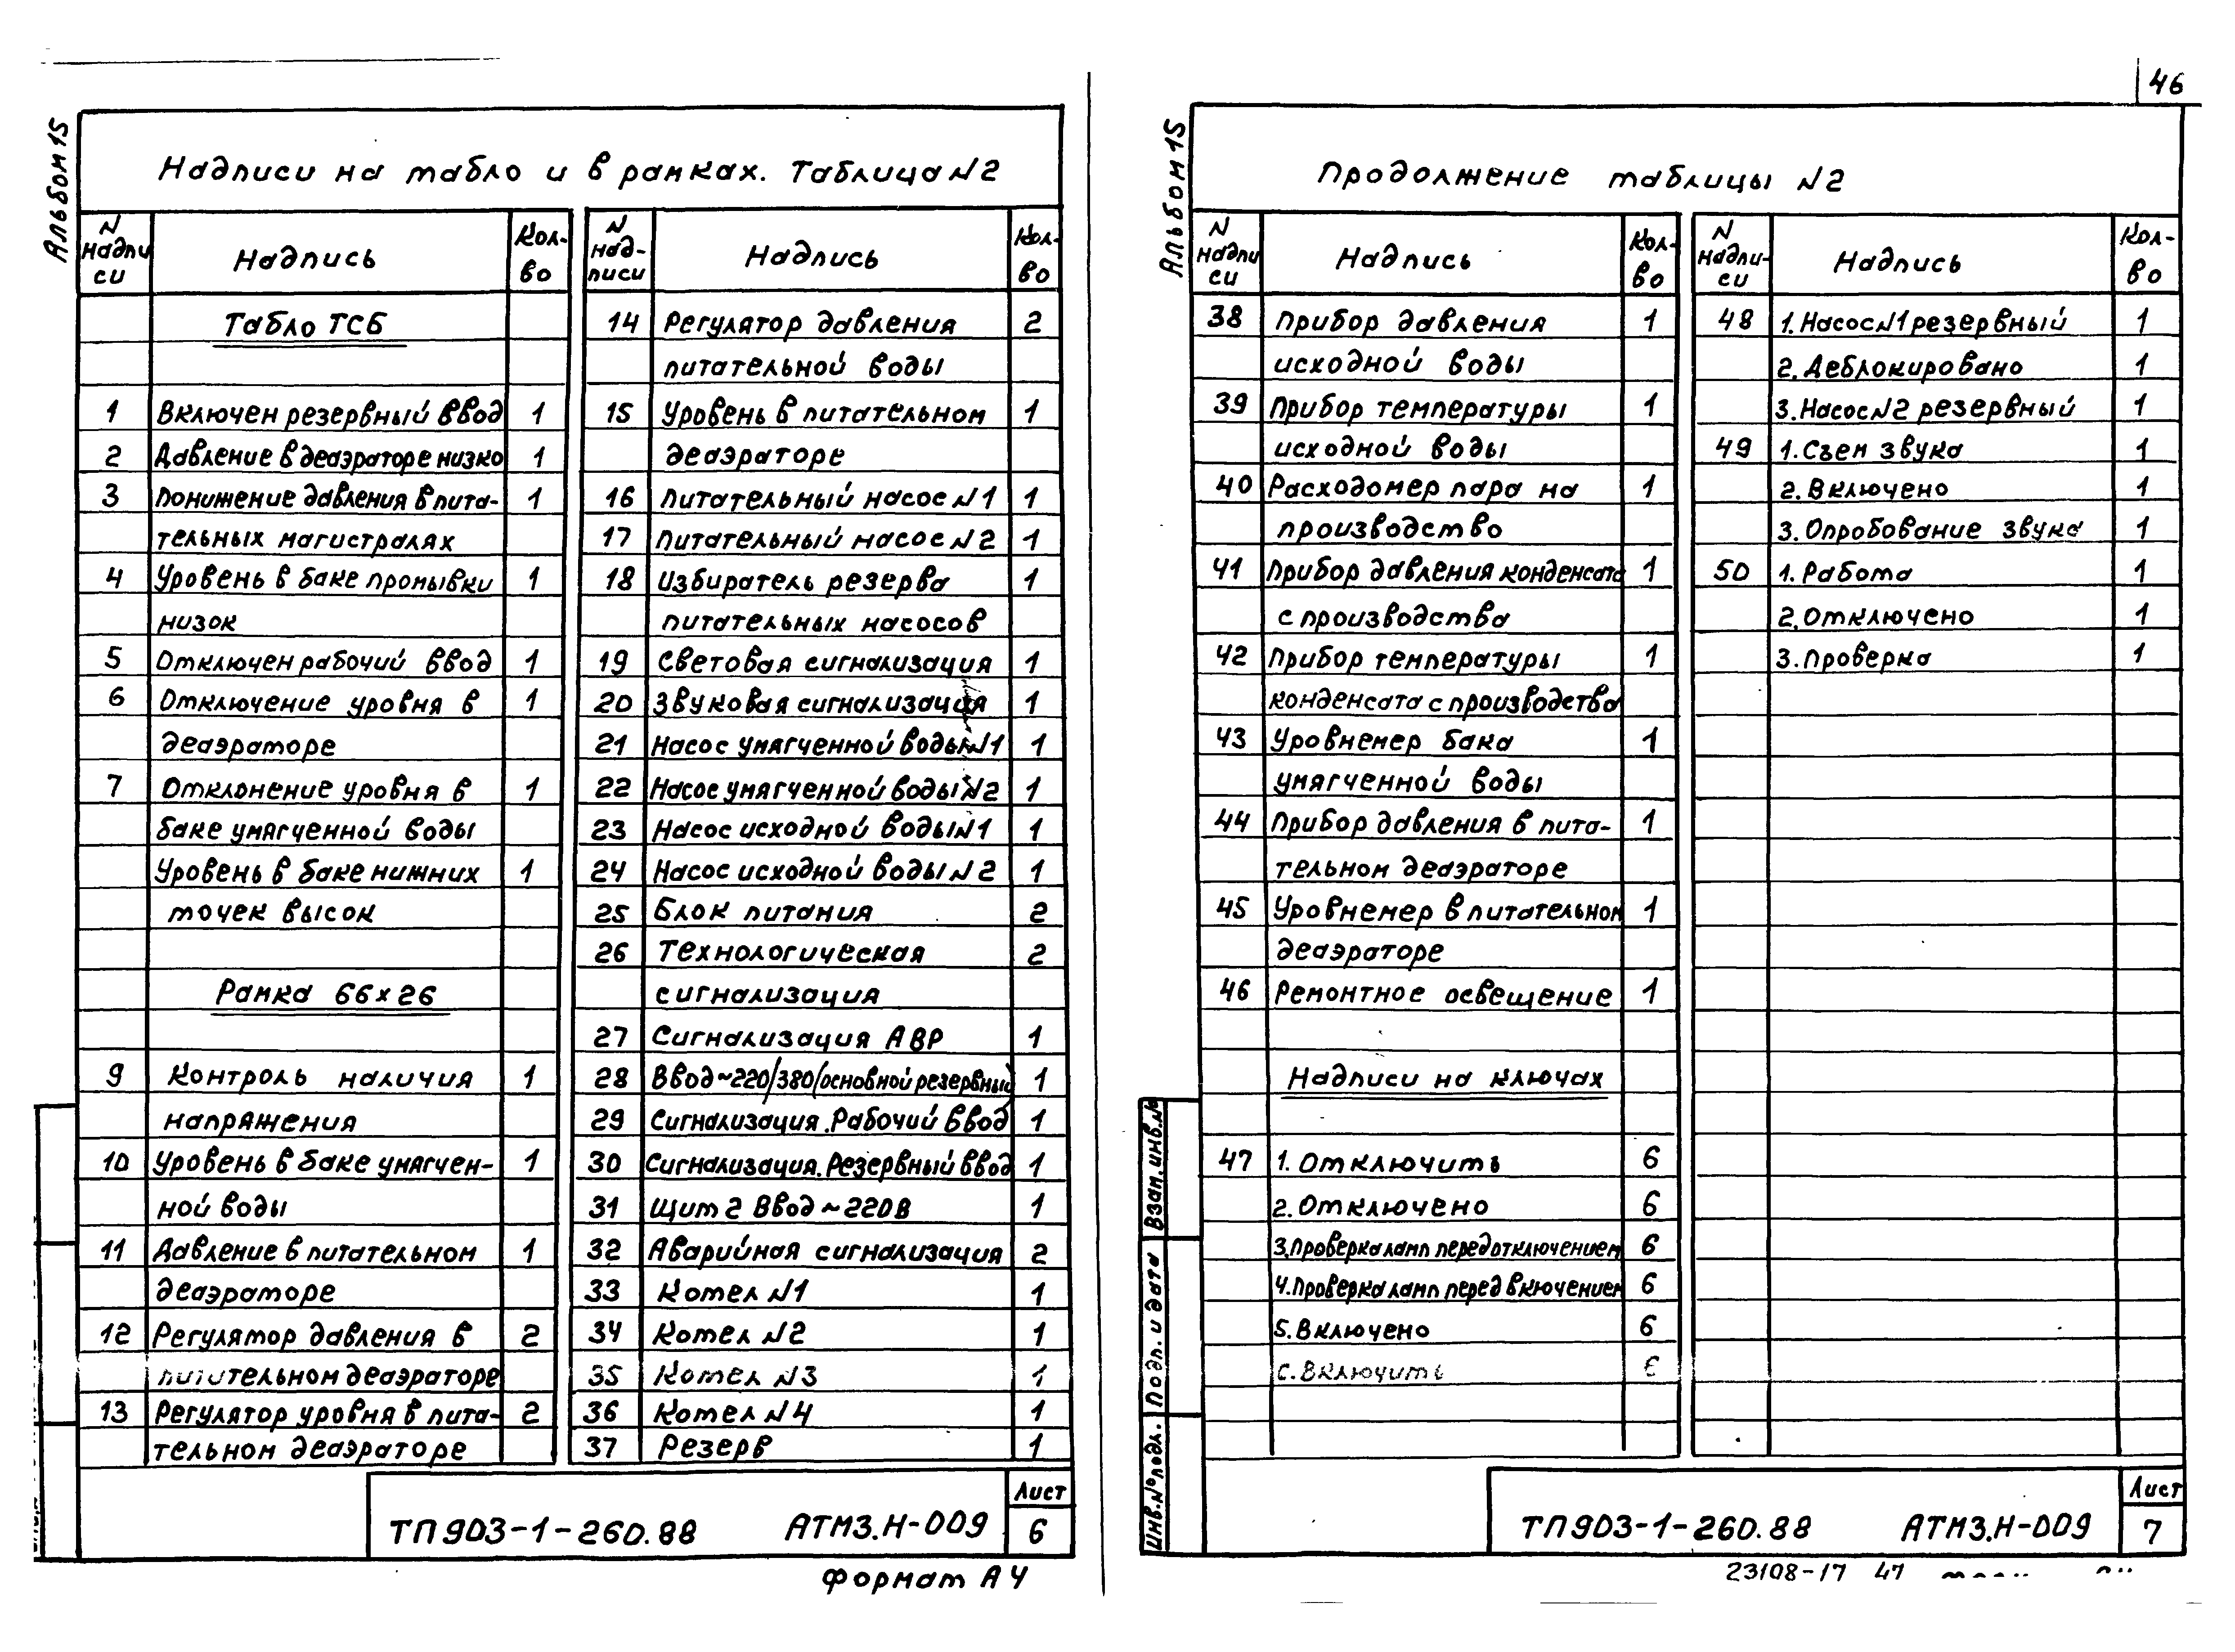 46
Альбом 15
Надписи на табло и в рамках. Таблица N2
N надписи Надпись Кол-во
Табло ТСБ
1 Включен резервный ввод 1
2 Давление в деаэраторе низко 1
3 Понижение давления в пита- 1
тельных магистралях
4 Уровень в баке промывки 1
низок
5 Отключен рабочий ввод 1
6 Отключение уровня в 1
деаэраторе
7 Отклонение уровня в 1
баке умягченной воды
Уровень в баке нижних 1
точек высок
Рамка 66х26
9 Контроль наличия 1
напряжения
10 Уровень в баке умягчен- 1
ной воды
11 Давление в питательном 1
деаэраторе
12 Регулятор давления в 2
питательном деаэраторе
13 Регулятор уровня в пита- 2
тельном деаэраторе
N над-писи Надпись Кол-во
14 Регулятор давления 2
питательной воды
15 Уровень в питательном 1
деаэраторе
16 Питательный насос N1 1
17 Питательный насос N2 1
18 Избиратель резерва 1
питательных насосов
19 Световая сигнализация 1
20 Звуковая сигнализация 1
21 Насос умягченной воды N1 1
22 Насос умягченной воды N2 1
23 Насос исходной воды N1 1
24 Насос исходной воды N2 1
25 Блок питания 2
26 Технологическая 2
сигнализация
27 Сигнализация АВР 1
28 Ввод ~220/380/основной резервный 1
29 Сигнализация. Рабочий ввод 1
30 Сигнализация. Резервный ввод 1
31 Щит 2 Ввод ~ 220В 1
32 Аварийная сигнализация 2
33 Котел N1 1
34 Котел N2 1
35 Котел N3 1
36 Котел N4 1
37 Резерв 1
ТП 903-1-260.88 АТМ3.Н-009 Лист 6
Формат А4
Альбом 15
Продолжение таблицы N2
N надписи Надпись Кол-во
38 Прибор давления 1
исходной воды
39 Прибор температуры 1
исходной воды
40 Расходомер пара на 1
производство
41 Прибор давления конденсата 1
с производства
42 Прибор температуры 1
конденсата с производства
43 Уровнемер бака 1
умягченной воды
44 Прибор давления в пита- 1
тельном деаэраторе
45 Уровнемер в питательном 1
деаэраторе
46 Ремонтное освещение 1
Надписи на ключах
47 1. Отключить 6
2. Отключено 6
3. Проверка ламп перед отключением 6
4. Проверка ламп перед включением 6
5. Включено 6
6. Включить 6
N надпи-си Надпись Кол-во
48 1. Насос N1 резервный 1
2. Деблокировано 1
3. Насос N2 резервный 1
49 1. Съем звука 1
2. Включено 1
3. Опробование звука 1
50 1. Работа 1
2. Отключено 1
3. Проверка 1
Взам. инв. №
Подп. и дата
Инв. № подл.
ТП 903-1-260.88 АТМ3.Н-009 Лист 7
23108-17 47